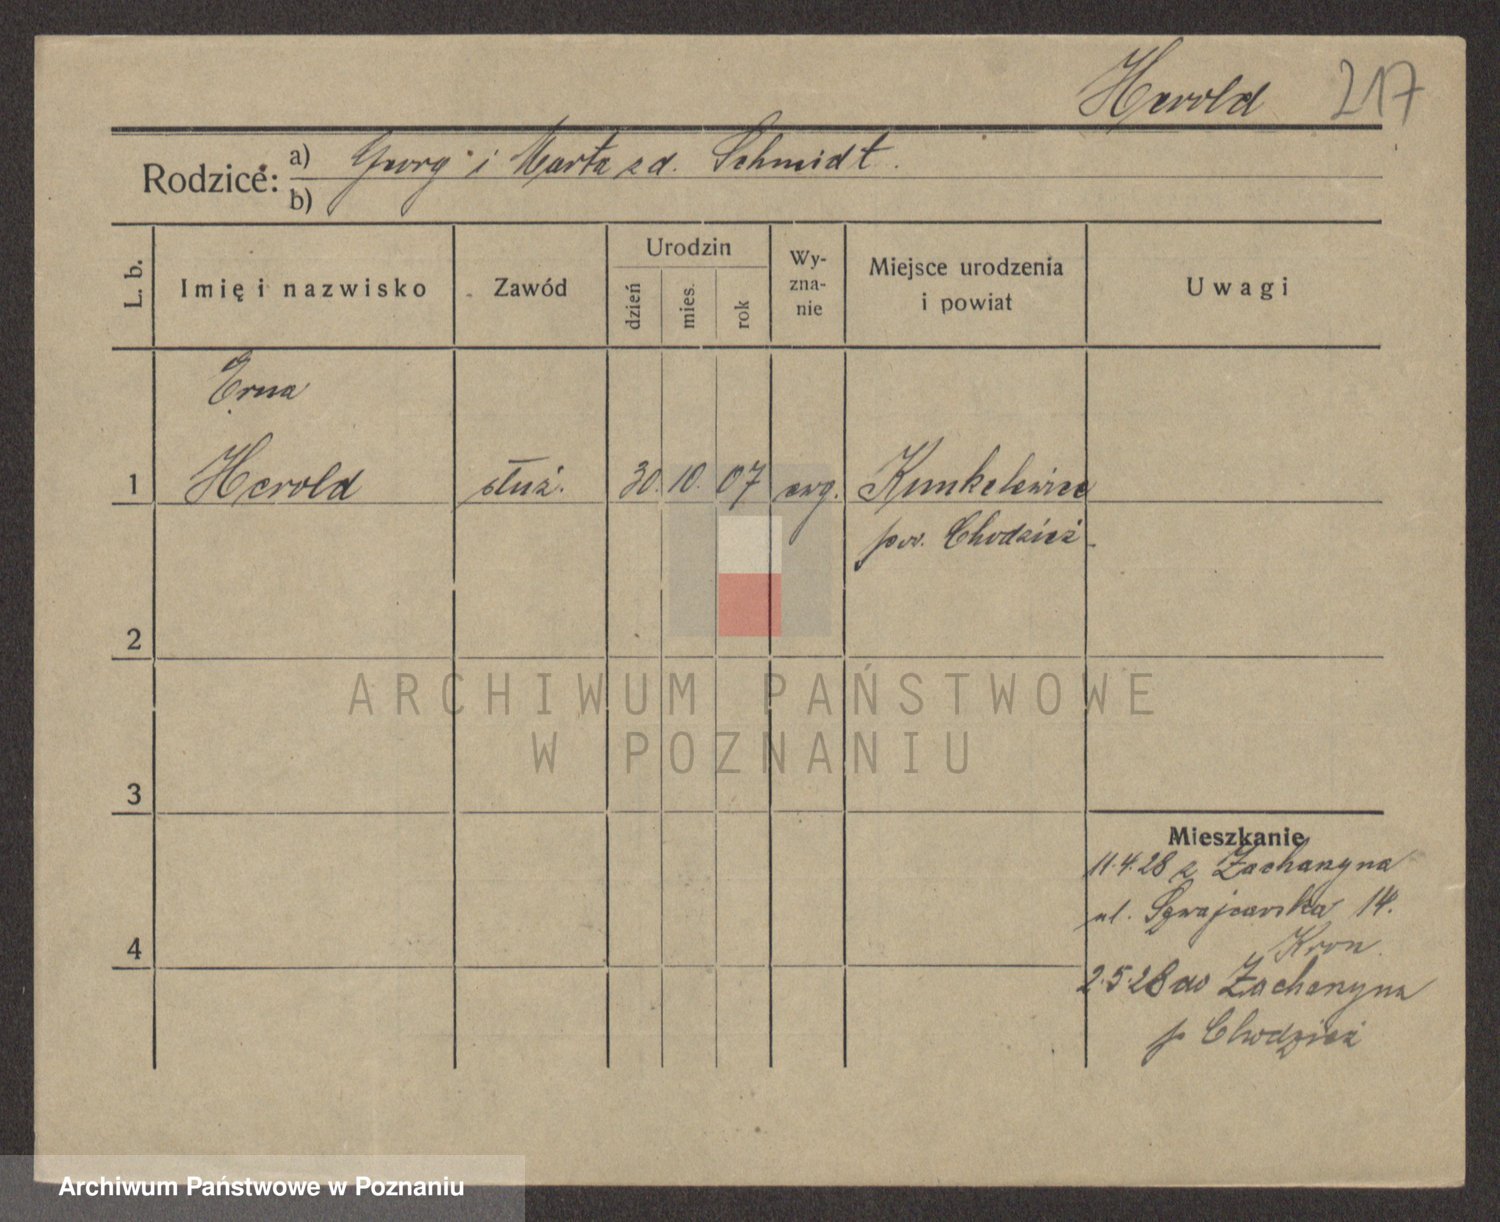 Herold 217
Rodzice: a) Georg i Marta zd. Schmidt.
b)
L. b. Imię i nazwisko Zawód Urodzin dzień mies. rok Wyznanie Miejsce urodzenia i powiat Uwagi
Erna
1 Herold służ. 30. 10. 07 ewg. Kunkelewice
pow. Chodzież
2
3
Mieszkanie
11.4.28 z Zacharzyna
ul. Szwajcarska 14.
4 Kron
2.5.28 do Zacharzyna
p Chodzież
ARCHIWUM PAŃSTWOWE
W POZNANIU
Archiwum Państwowe w Poznaniu